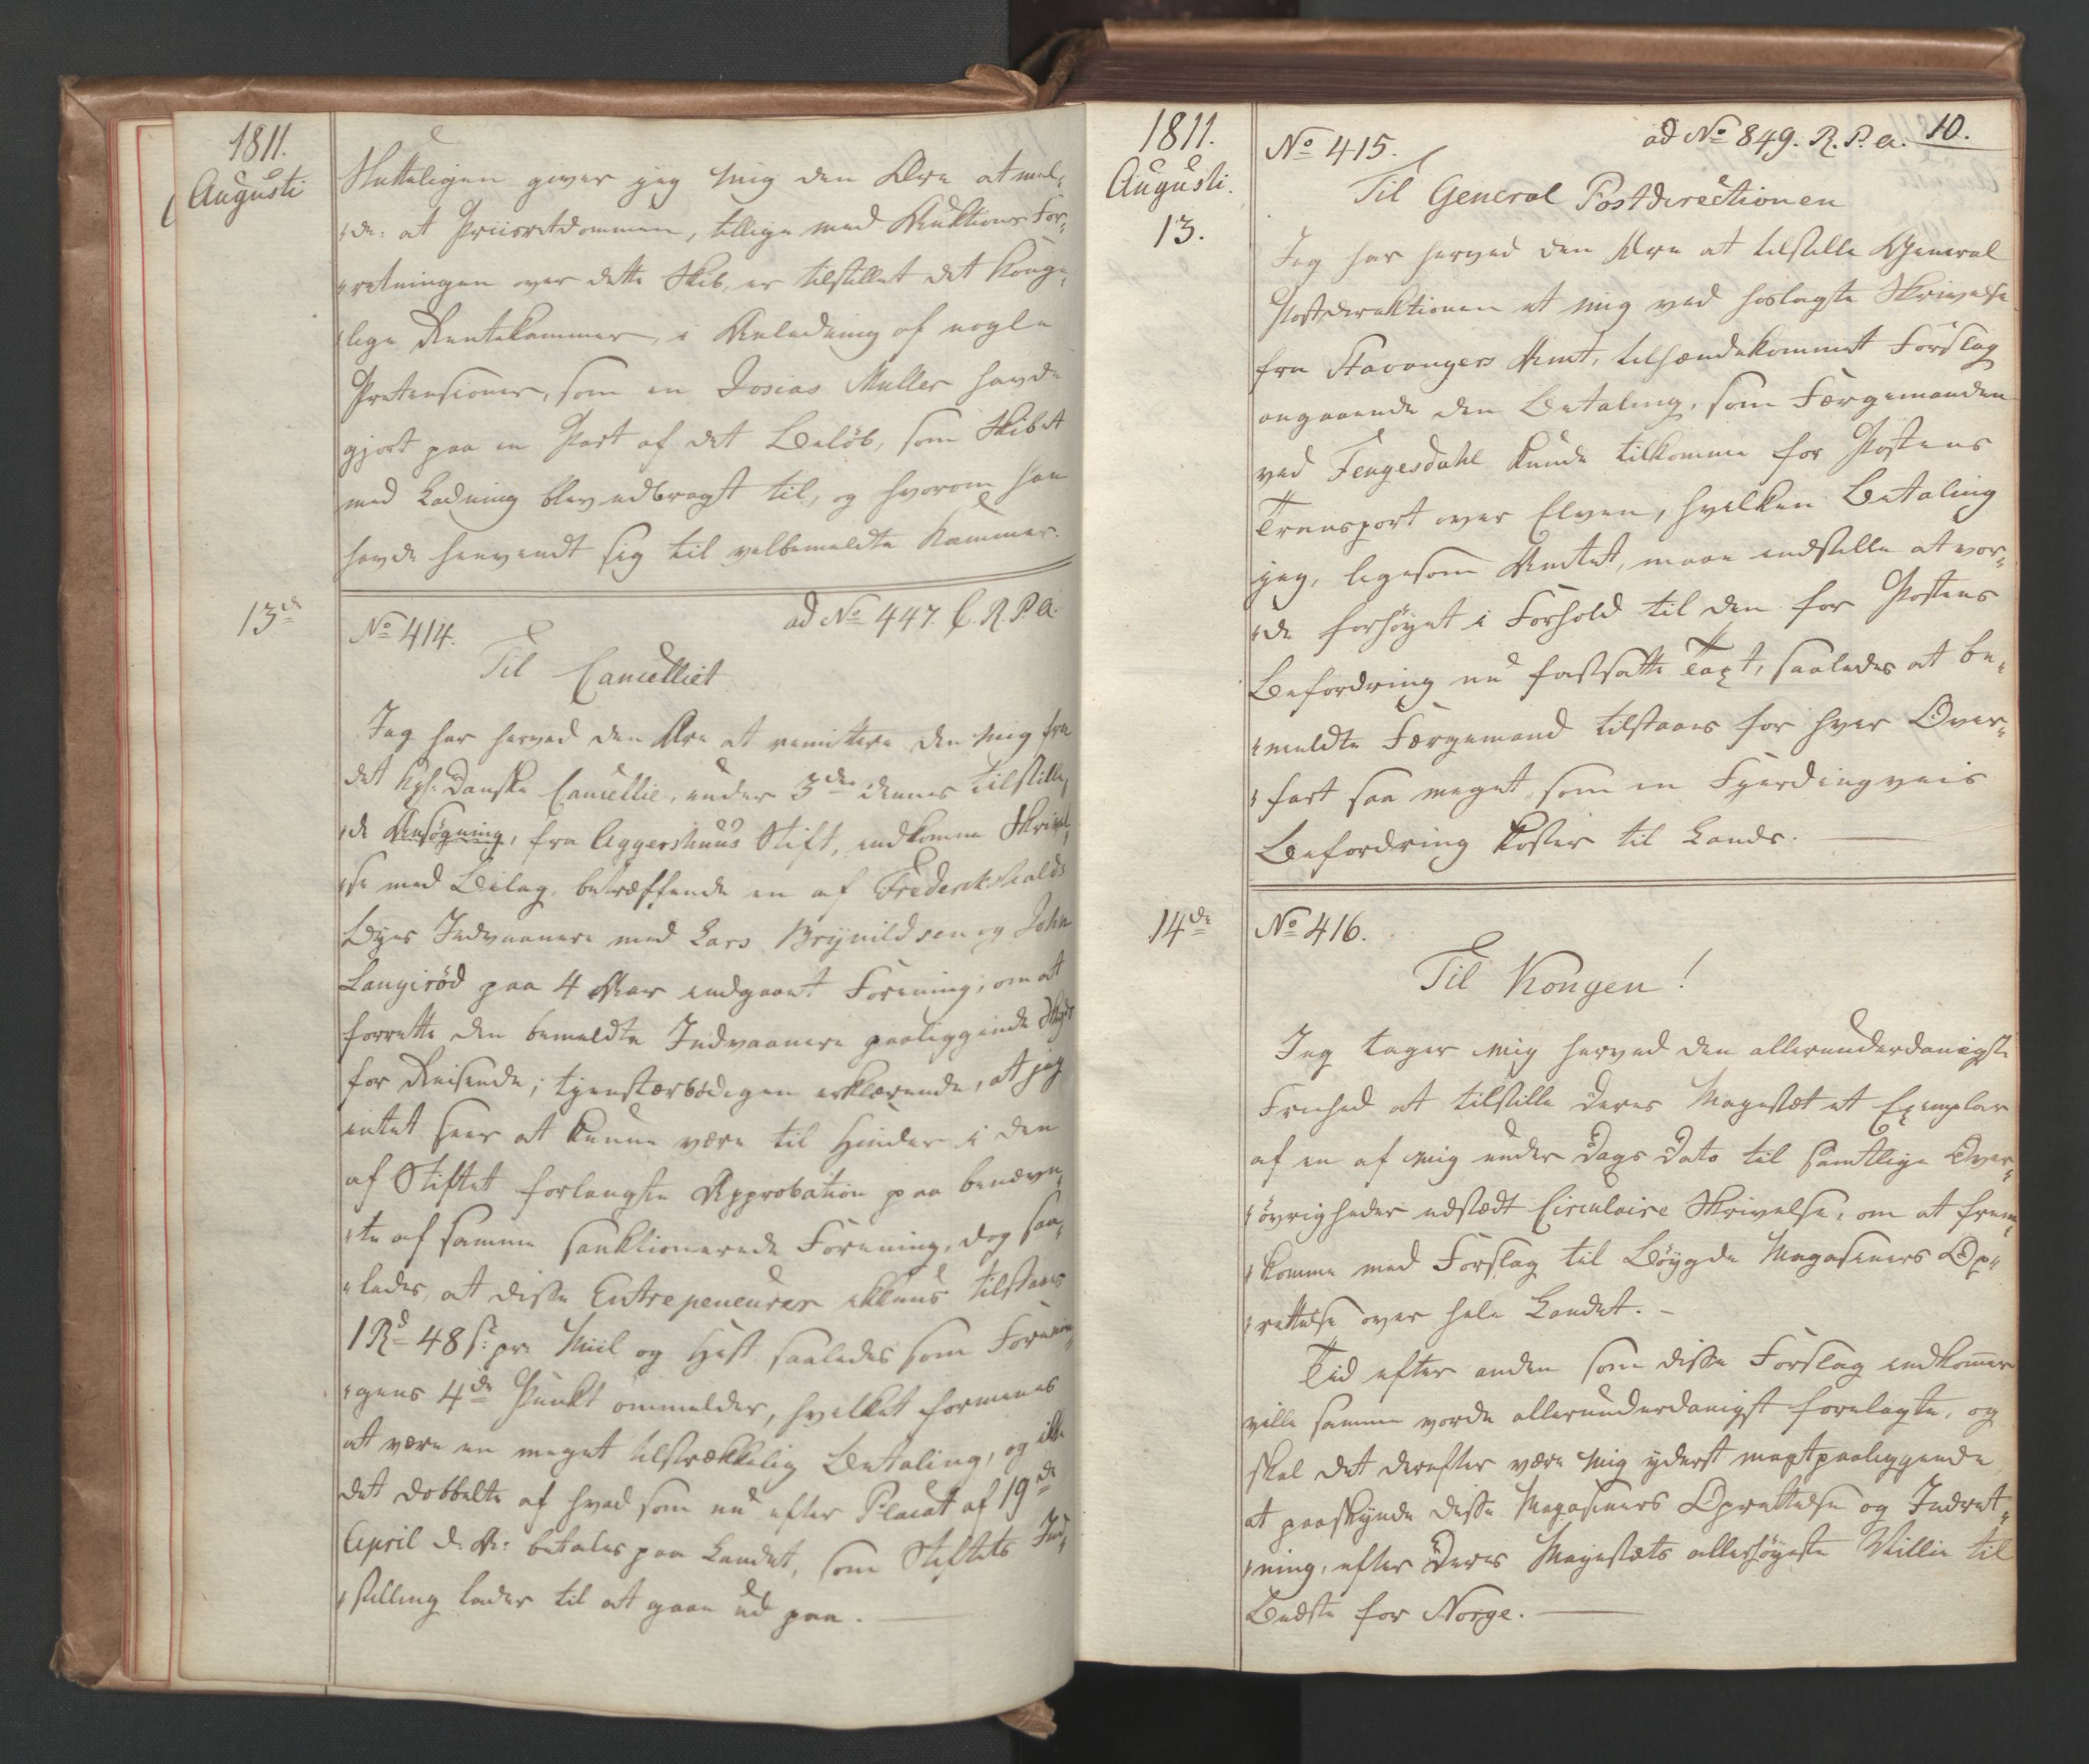 1811.
Augusti
Slutteligen giver jeg mig den Ære at mel„
„de: at Priisretdommen, tillige med Auktions For„
„retningen over dette Skib, er tilstillet det Konge„
„lige Rentekammer, i Anledning af nogle
Prætensioner, som en Josias Muller havde
gjort paa en Part af det Beløb, som Skibet
med Ladning blev udbragt til, og hvorom han
havde henvendt sig til velbemeldte Kammer.
13de
No 414.
ad No 447 C. R. P. a.
Til Cancelliet
Jeg har herved den Ære at remittere den mig fra
det Kgl. Danske Cancellie, under 3de dennes tilstille„
„de Ansøgning, fra Aggershuus Stift, indkomne Skrivel„
„se med Bilag betræffende en af Frederikshalds
Byes Indvaanere med Lars Brynildsen og John
Langerød paa 4 Aar indgaaet Forening, om at
forrette den bemeldte Indvaanere paaliggende Skyds
for Reisende; tjenstærbødigen erklærende, at jeg
intet seer at kunne være til Hinder i den
af Stiftet forlangte Approbation paa benævn„
„te af samme sanktionerede Forening, dog saa„
„ledes, at disse Entrepeneurer alleene tilstaaes
1 Rd 48 s. pr. Miil og Hest saaledes som Foreenin„
„gens 4de Punkt ommelder, hvilket formenes
at være en meget tilstrækkelig Betaling, og ikke
det dobbelte af hvad som nu efter Placat af 19de
April d. A. betales paa Landet, som Stiftets Ind„
„stilling lader til at gaae ud paa.
1811.
Augusti.
13.
No 415.
ad No 849. R. P. a.
10.
Til General Postdirectionen
Jeg har herved den Ære at tilstille General
Postdirektionen et mig ved hoslagte Skrivelse
fra Stavangers Amt, tilhændekommet Forslag
angaaende den Betaling, som Færgemanden
ved Fengesdahl kunde tilkomme for Postens
Transport over Elven, hvilken Betaling
jeg, ligesom Amtet, maae indstille at vor„
„de forhøyet i Forhold til den for Postens
Befordring nu fastsatte Taxt, saaledes at be„
„meldte Færgemand tilstaaes for hver Over„
„fart saa meget, som en Fjerdingveis
Befordring koster til Lands.
14de
No 416.
Til Kongen!
Jeg tager mig herved den allerunderdanigste
Friehed at tilstille Deres Majestæt et Exemplar
af en af mig under Dags Dato til samtlige Over„
„øvrigheder udstædt Circulaire Skrivelse, om at frem„
„komme med Forslag til Bøygde Magasiners Op„
„rettelse over hele Landet. –
Tid efter anden som disse Forslag indkommer
ville samme vorde allerunderdanigst forelagte, og
skal det derefter være mig yderst magtpaaliggende
at paaskynde disse Magasiners Oprettelse og Indret„
„ning, efter Deres Majestæts allerhøyeste Villie til
Bedste for Norge.